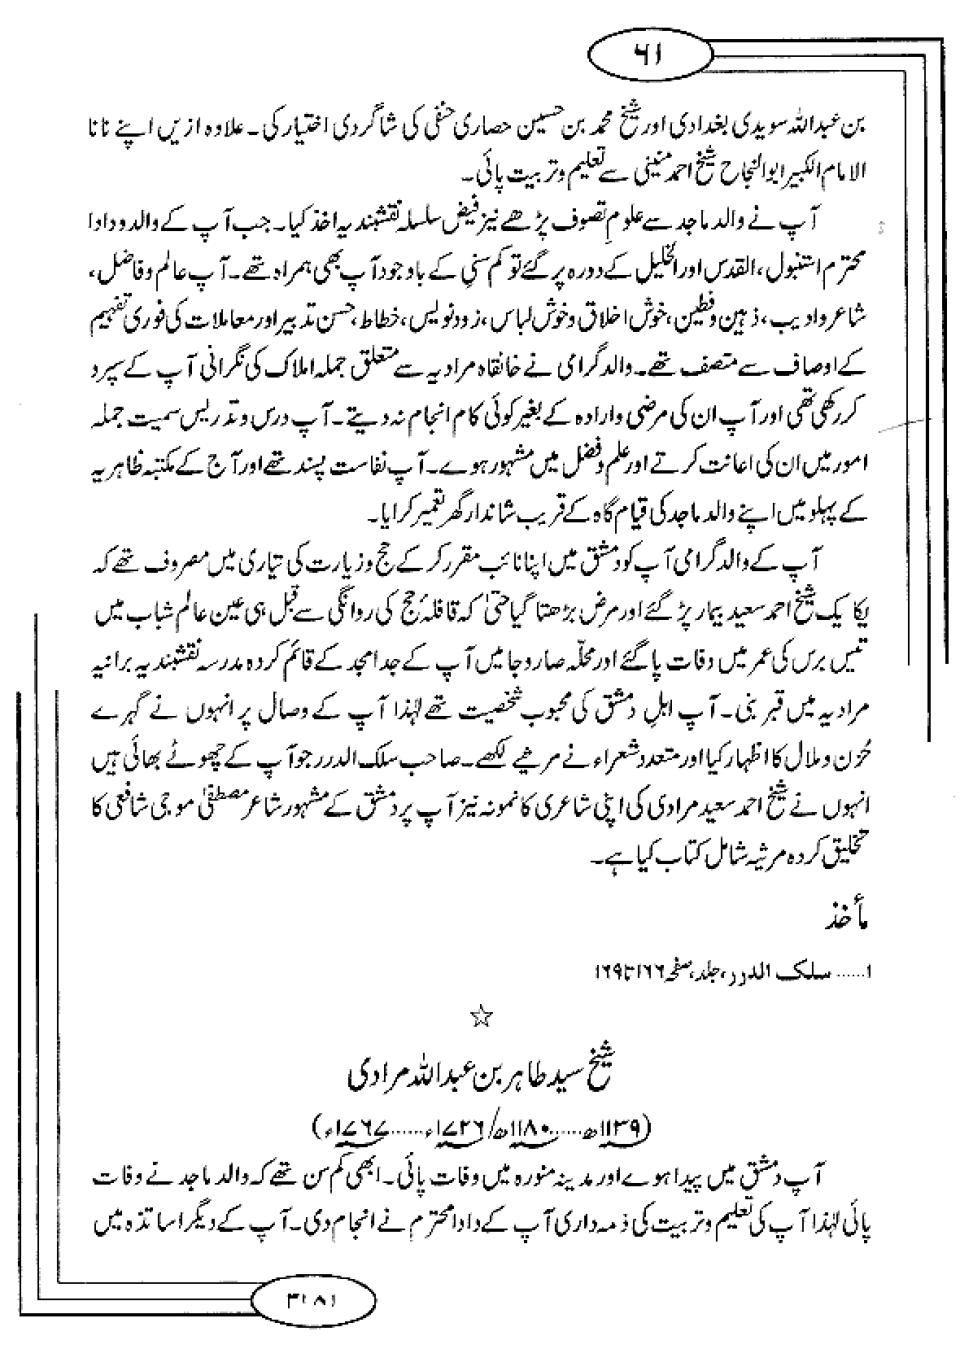 ۶۱
بن عبداللہ سویدی بغدادی اور شیخ محمد بن حسین حصاری حنفی کی شاگردی اختیار کی۔ علاوہ ازیں اپنے نانا
الامام الکبیر ابوالنجاح شیخ احمد منینی سے تعلیم و تربیت پائی۔
آپ نے والد ماجد سے علومِ تصوف پڑھے نیز فیض سلسلہ نقشبندیہ اخذ کیا۔ جب آپ کے والد و دادا
محترم استنبول، القدس اور الخلیل کے دورہ پر گئے تو کم سنی کے باوجود آپ بھی ہمراہ تھے۔ آپ عالم و فاضل،
شاعر و ادیب، ذہین و فطین، خوش اخلاق و خوش لباس، زود نویس، خطاط، حسن تدبیر اور معاملات کی فوری تفہیم
کے اوصاف سے متصف تھے۔ والد گرامی نے خانقاہ مرادیہ سے متعلق جملہ املاک کی نگرانی آپ کے سپرد
کر رکھی تھی اور آپ ان کی مرضی و ارادہ کے بغیر کوئی کام انجام نہ دیتے۔ آپ درس و تدریس سمیت جملہ
امور میں ان کی اعانت کرتے اور علم و فضل میں مشہور ہوے۔ آپ نفاست پسند تھے اور آج کے مکتبہ ظاہریہ
کے پہلو میں اپنے والد ماجد کی قیام گاہ کے قریب شاندار گھر تعمیر کرایا۔
آپ کے والد گرامی آپ کو دمشق میں اپنا نائب مقرر کر کے حج و زیارت کی تیاری میں مصروف تھے کہ
یکایک شیخ احمد سعید بیمار پڑ گئے اور مرض بڑھتا گیا حتیٰ کہ قافلۂ حج کی روانگی سے قبل ہی عین عالم شباب میں
تیس برس کی عمر میں وفات پا گئے اور محلّہ صاروجا میں آپ کے جد امجد کے قائم کردہ مدرسہ نقشبندیہ برانیہ
مرادیہ میں قبر بنی۔ آپ اہلِ دمشق کی محبوب شخصیت تھے لہٰذا آپ کے وصال پر انہوں نے گہرے
حُزن و ملال کا اظہار کیا اور متعدد شعراء نے مرثیے لکھے۔ صاحب سلک الدرر جو آپ کے چھوٹے بھائی ہیں
انہوں نے شیخ احمد سعید مرادی کی اپنی شاعری کا نمونہ نیز آپ پر دمشق کے مشہور شاعر مصطفیٰ موجی شافعی کا
تخلیق کردہ مرثیہ شامل کتاب کیا ہے۔
مأخذ
۱...... سلک الدرر، جلد، صفحہ ۱۶۶ تا ۱۶۹
☆
شیخ سید طاہر بن عبداللہ مرادی
(۱۱۳۹ھ......۱۱۸۰ھ/۱۷۲۶ء......۱۷۶۷ء)
آپ دمشق میں پیدا ہوے اور مدینہ منورہ میں وفات پائی۔ ابھی کم سن تھے کہ والد ماجد نے وفات
پائی لہٰذا آپ کی تعلیم و تربیت کی ذمہ داری آپ کے دادا محترم نے انجام دی۔ آپ کے دیگر اساتذہ میں